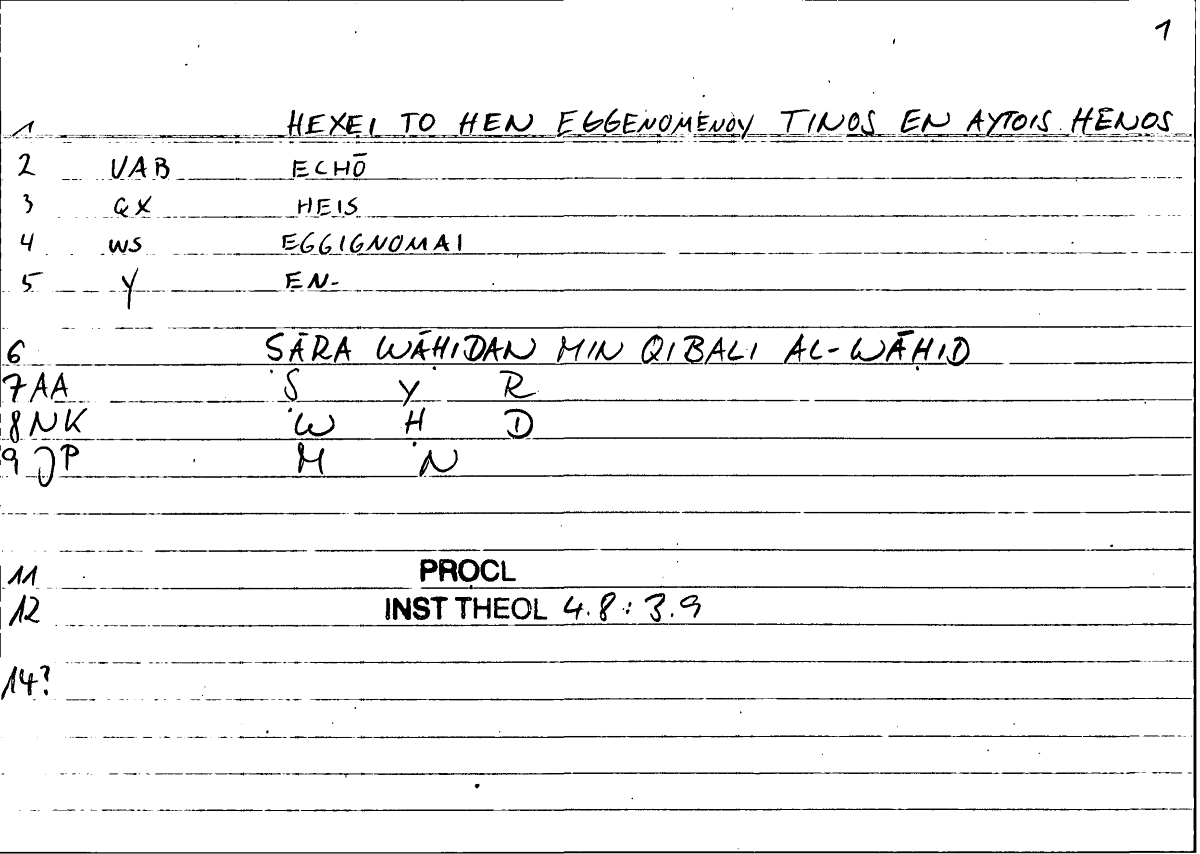 1
1 HEXEI TO HEN EGGENOMENOY TINOS EN AYTOIS HENOS
2 VAB ECHŌ
3 GX HEIS
4 WS EGGIGNOMAI
5 Y EN-
6 ṢĀRA WĀḤIDAN MIN QIBALI AL-WĀḤID
7 AA Ṣ Y R
8 NK W Ḥ D
9 JP M N
11 PROCL
12 INST THEOL 4.8:3.9
14?